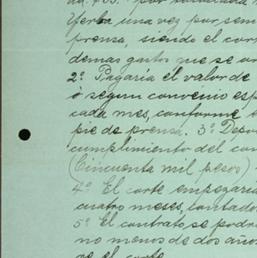 Yerba una vez por sem
prensa, siendo el cor
demas gastos que se or
2º Pagaria el valor de
ó segun convenio esp
cada mes, conforme e
pie de prensa. 3º Depo
cumplimiento del con
(Cincuenta mil pesos)
4º El corte empezaria
cuatro meses, contados
5º El contrato se podrá
no menos de dos años